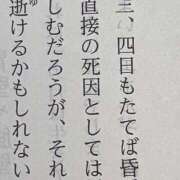 三、四日もたてば昏
直接の死因としては
しむだろうが、それ
逝けるかもしれない
ゆ